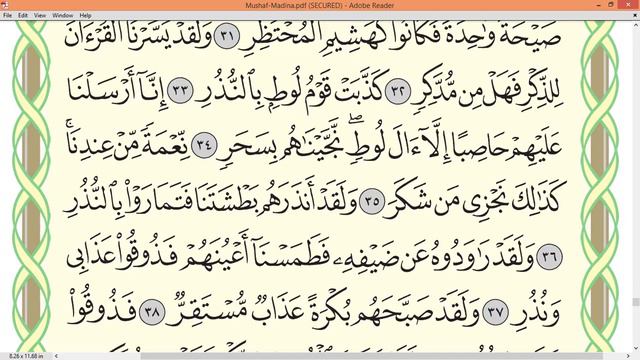 Mushaf-Madina.pdf (SECURED) - Adobe Reader
File Edit View Window Help
صَيْحَةً وَٰحِدَةً فَكَانُوا۟ كَهَشِيمِ ٱلْمُحْتَظِرِ ٣١ وَلَقَدْ يَسَّرْنَا ٱلْقُرْءَانَ
لِلذِّكْرِ فَهَلْ مِن مُّدَّكِرٍ ٣٢ كَذَّبَتْ قَوْمُ لُوطٍۭ بِٱلنُّذُرِ ٣٣ إِنَّآ أَرْسَلْنَا
عَلَيْهِمْ حَاصِبًا إِلَّآ ءَالَ لُوطٍ ۖ نَّجَّيْنَٰهُم بِسَحَرٍ ٣٤ نِّعْمَةً مِّنْ عِندِنَا ۚ
كَذَٰلِكَ نَجْزِى مَن شَكَرَ ٣٥ وَلَقَدْ أَنذَرَهُم بَطْشَتَنَا فَتَمَارَوْا۟ بِٱلنُّذُرِ
٣٦ وَلَقَدْ رَٰوَدُوهُ عَن ضَيْفِهِۦ فَطَمَسْنَآ أَعْيُنَهُمْ فَذُوقُوا۟ عَذَابِى
وَنُذُرِ ٣٧ وَلَقَدْ صَبَّحَهُم بُكْرَةً عَذَابٌ مُّسْتَقِرٌّ ٣٨ فَذُوقُوا۟
8.26 x 11.68 in